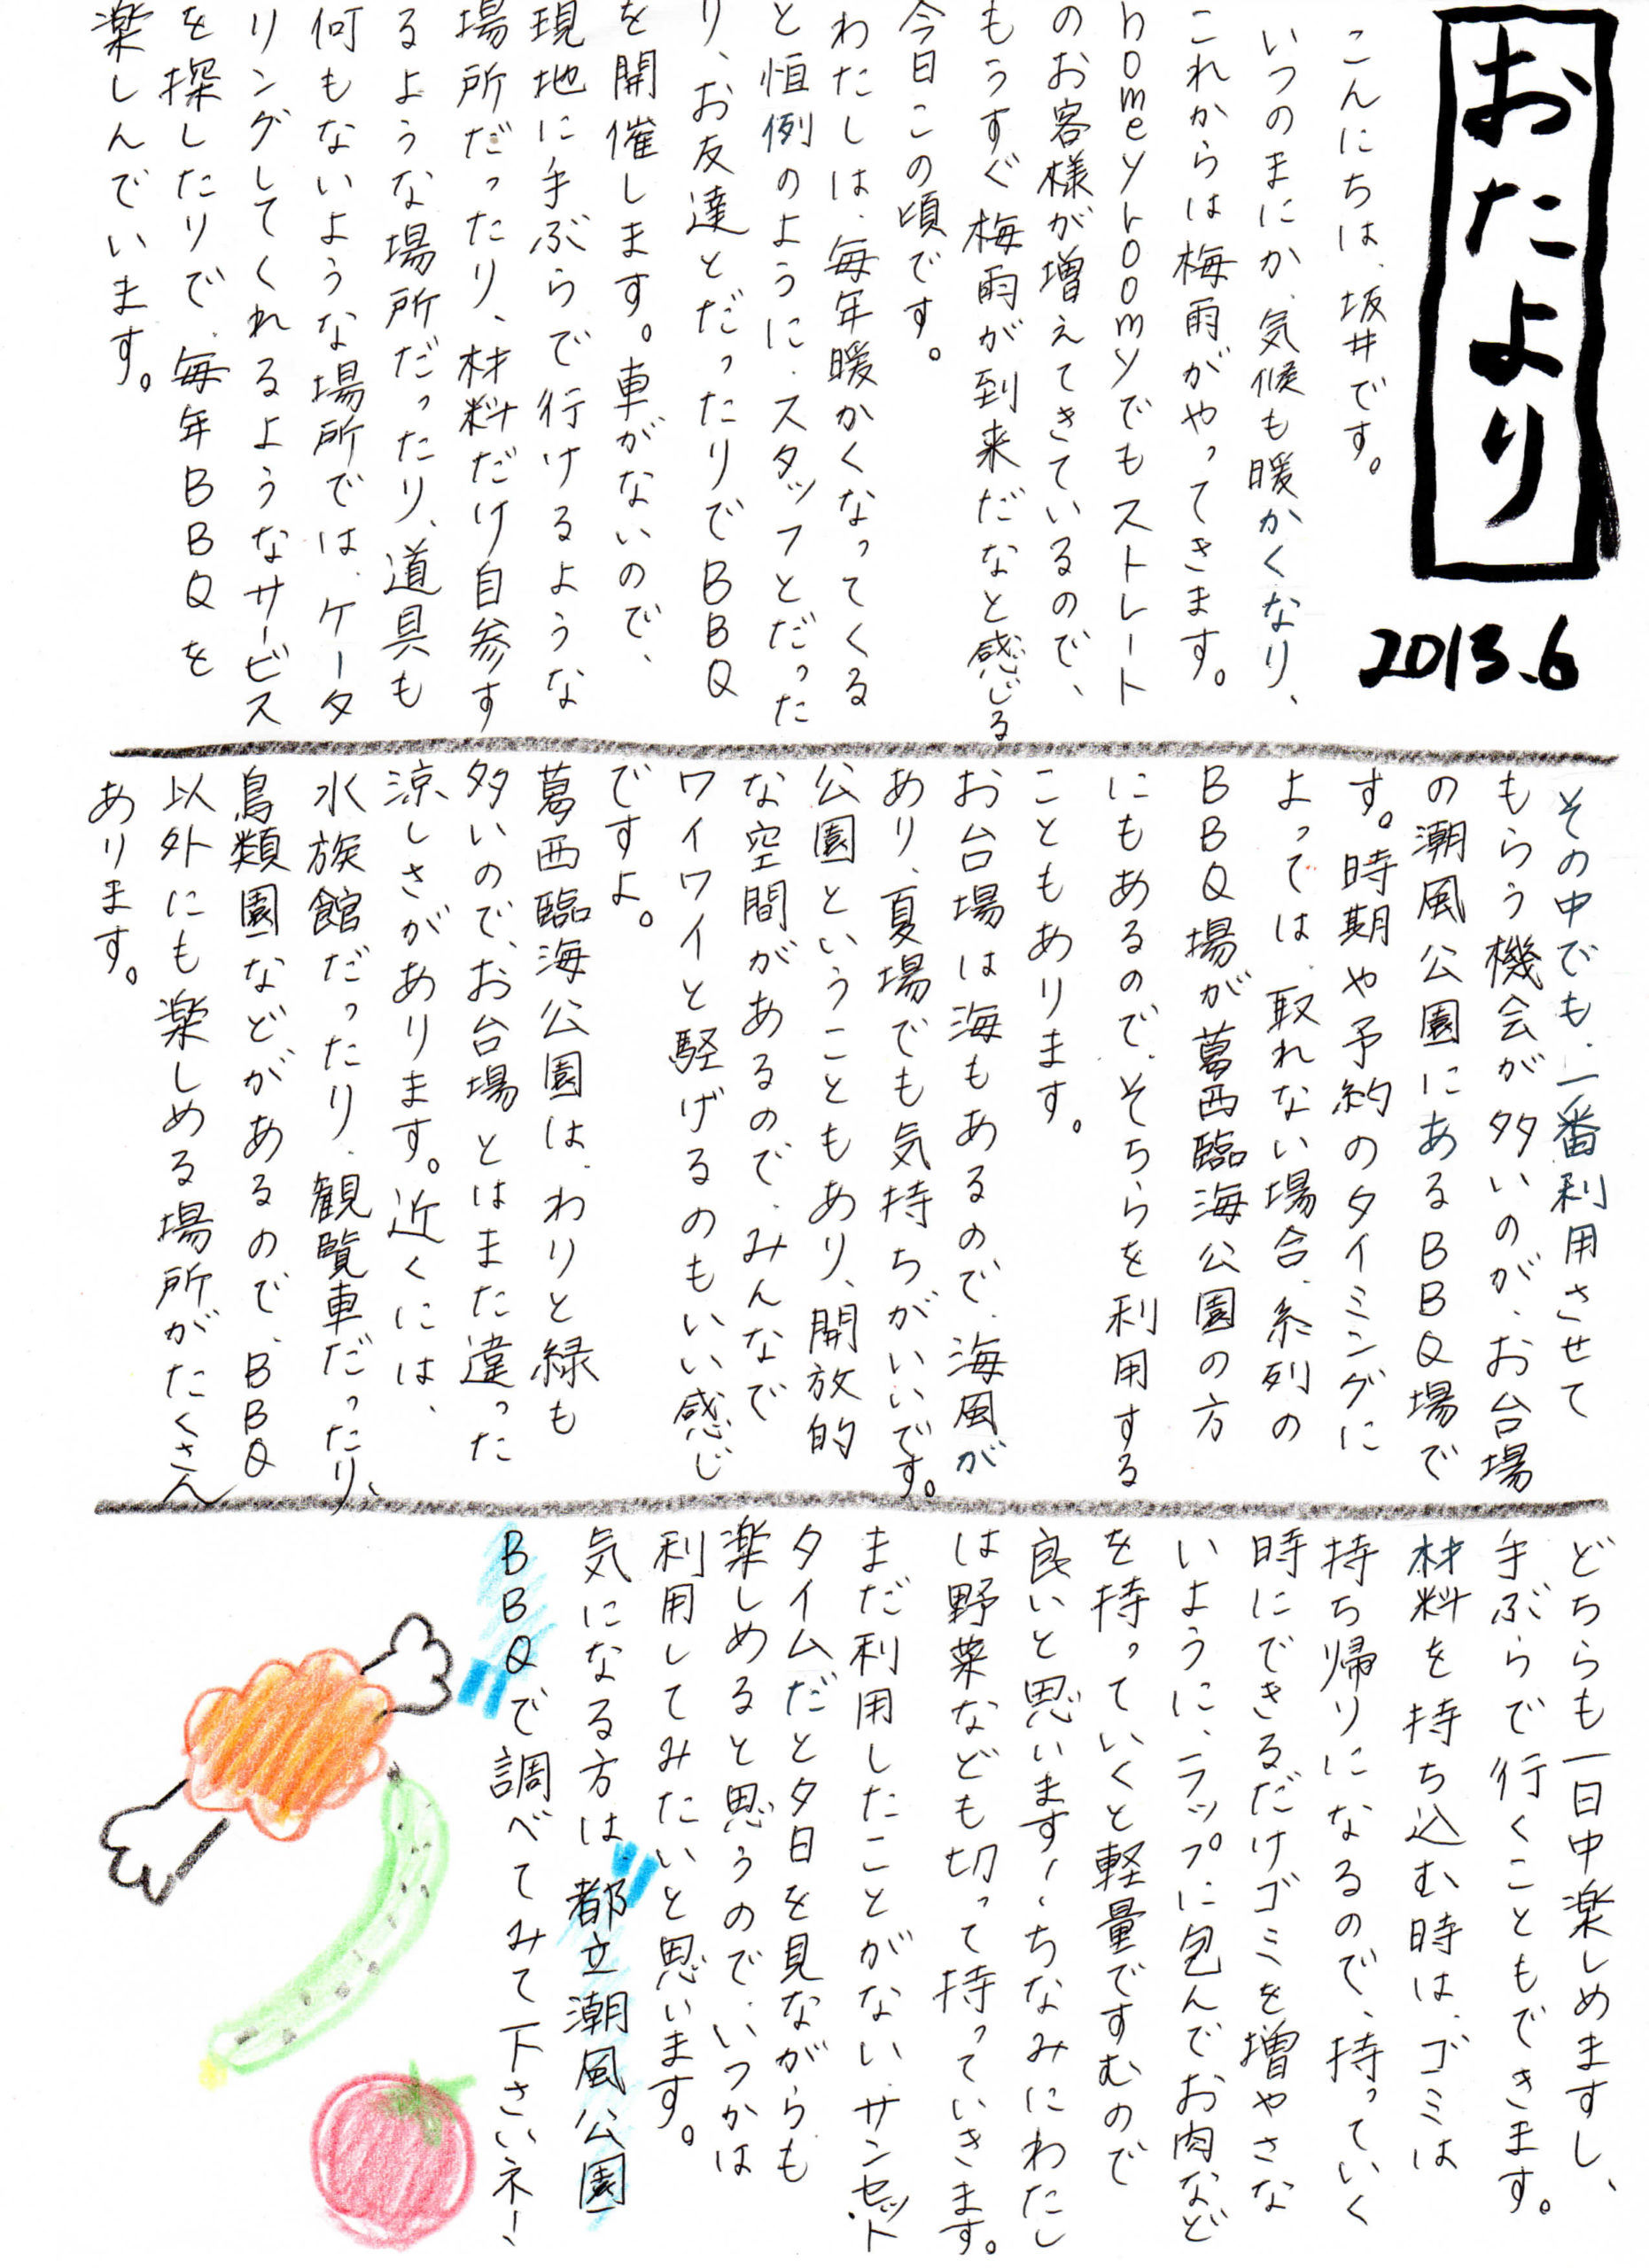 おたより
2013.6
こんにちは、坂井です。
いつのまにか、気候も暖かくなり、
これからは梅雨がやってきます。
homeyroomyでもストレート
のお客様が増えてきているので、
もうすぐ梅雨が到来だなと感じる
今日この頃です。
わたしは、毎年暖かくなってくる
と恒例のように、スタッフとだった
り、お友達とだったりでBBQ
を開催します。車がないので、
現地に手ぶらで行けるような
場所だったり、材料だけ自参す
るような場所だったり、道具も
何もないような場所では、ケータ
リングしてくれるようなサービス
を探したりで、毎年BBQを
楽しんでいます。
その中でも、一番利用させて
もらう機会が多いのが、お台場
の潮風公園にあるBBQ場で
す。時期や予約のタイミングに
よっては、取れない場合、系列の
BBQ場が葛西臨海公園の方
にもあるので、そちらを利用する
こともあります。
お台場は海もあるので、海風が
あり、夏場でも気持ちがいいです。
公園ということもあり、開放的
な空間があるので、みんなで
ワイワイと騒げるのもいい感じ
ですよ。
葛西臨海公園は、わりと緑も
多いので、お台場とはまた違った
涼しさがあります。近くには、
水族館だったり、観覧車だったり、
鳥類園などがあるので、BBQ
以外にも楽しめる場所がたくさん
あります。
どちらも一日中楽しめますし、
手ぶらで行くこともできます。
材料を持ち込む時は、ゴミは
持ち帰りになるので、持っていく
時にできるだけゴミを増やさな
いように、ラップに包んでお肉など
を持っていくと軽量ですむので
良いと思います!ちなみにわたし
は野菜なども切って持っていきます。
まだ利用したことがない、サンセット
タイムだと夕日を見ながらも
楽しめると思うので、いつかは
利用してみたいと思います。
気になる方は"都立潮風公園
BBQ"で調べてみて下さいネ!